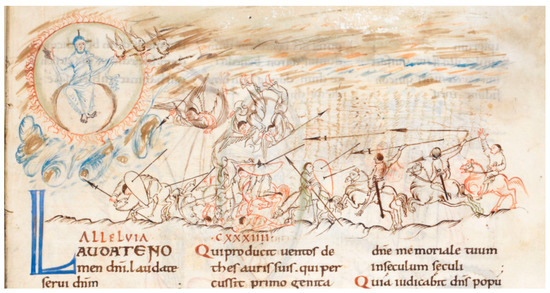 ALLELVIA
LAUDATENO
men dñi. laudate
serui dñm
·CXXXIIII·
Qui producit uentos de
thesauris suis. qui per
cussit primo genita
dñe memoriale tuum
inseculum seculi
Quia iudicabit dñs popu